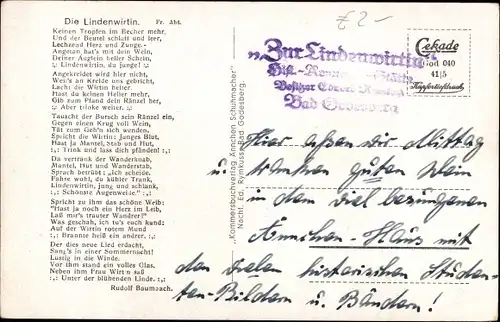 Die Lindenwirtin. Fr. Abt.
Keinen Tropfen im Becher mehr,
Und der Beutel schlaff und leer,
Lechzend Herz und Zunge. -
Angetan hat's mit dein Wein,
Deiner Äuglein heller Schein,
:,: Lindenwirtin, du junge! :,:
Angekreidet wird hier nicht,
Weil's an Kreide uns gebricht,
Lacht die Wirtin heiter.
Hast du keinen Heller mehr,
Gib zum Pfand dein Ränzel her,
:,: Aber trinke weiter. :,:
Tauscht der Bursch sein Ränzel ein,
Gegen einen Krug voll Wein,
Tät zum Geh'n sich wenden.
Spricht die Wirtin: Junges Blut,
Hast ja Mantel, Stab und Hut,
:,: Trink und lass dich pfänden! :,:
Da vertrank der Wanderknab,
Mantel, Hut und Wanderstab,
Sprach betrübt: „Ich scheide.
Fahre wohl, du kühler Trank,
Lindenwirtin, jung und schlank,
:,: Schönste Augenweide." :,:
Spricht zu ihm das schöne Weib:
"Hast ja noch ein Herz im Leib,
Laß mir's trauter Wandrer!"
Was geschah, ich tu's euch kund:
Auf der Wirtin rotem Mund
:,: Brannte heiß ein andrer. :,:
Der dies neue Lied erdacht,
Sang's in einer Sommernacht
Lustig in die Winde.
Vor ihm stand ein volles Glas,
Neben ihm Frau Wirtin saß
:,: Unter der blühenden Linde. :,:
Rudolf Baumbach.
"Kommersbuchverlag Ännchen Schuhmacher"
Nachf. Ed. Rymbusse Bad Godesberg.
£ 2-
„Zur Lindenwirtin
Besitzer
Bad Godesberg
Cekade
God 040
41|5
Kupfertiefdruck
Hier aßen wir Mittag
u. tranken guten Wein
in dem viel besungenen
Ännchen-Haus mit
den vielen historischen Studen-
ten-Bildern u. Bändern!